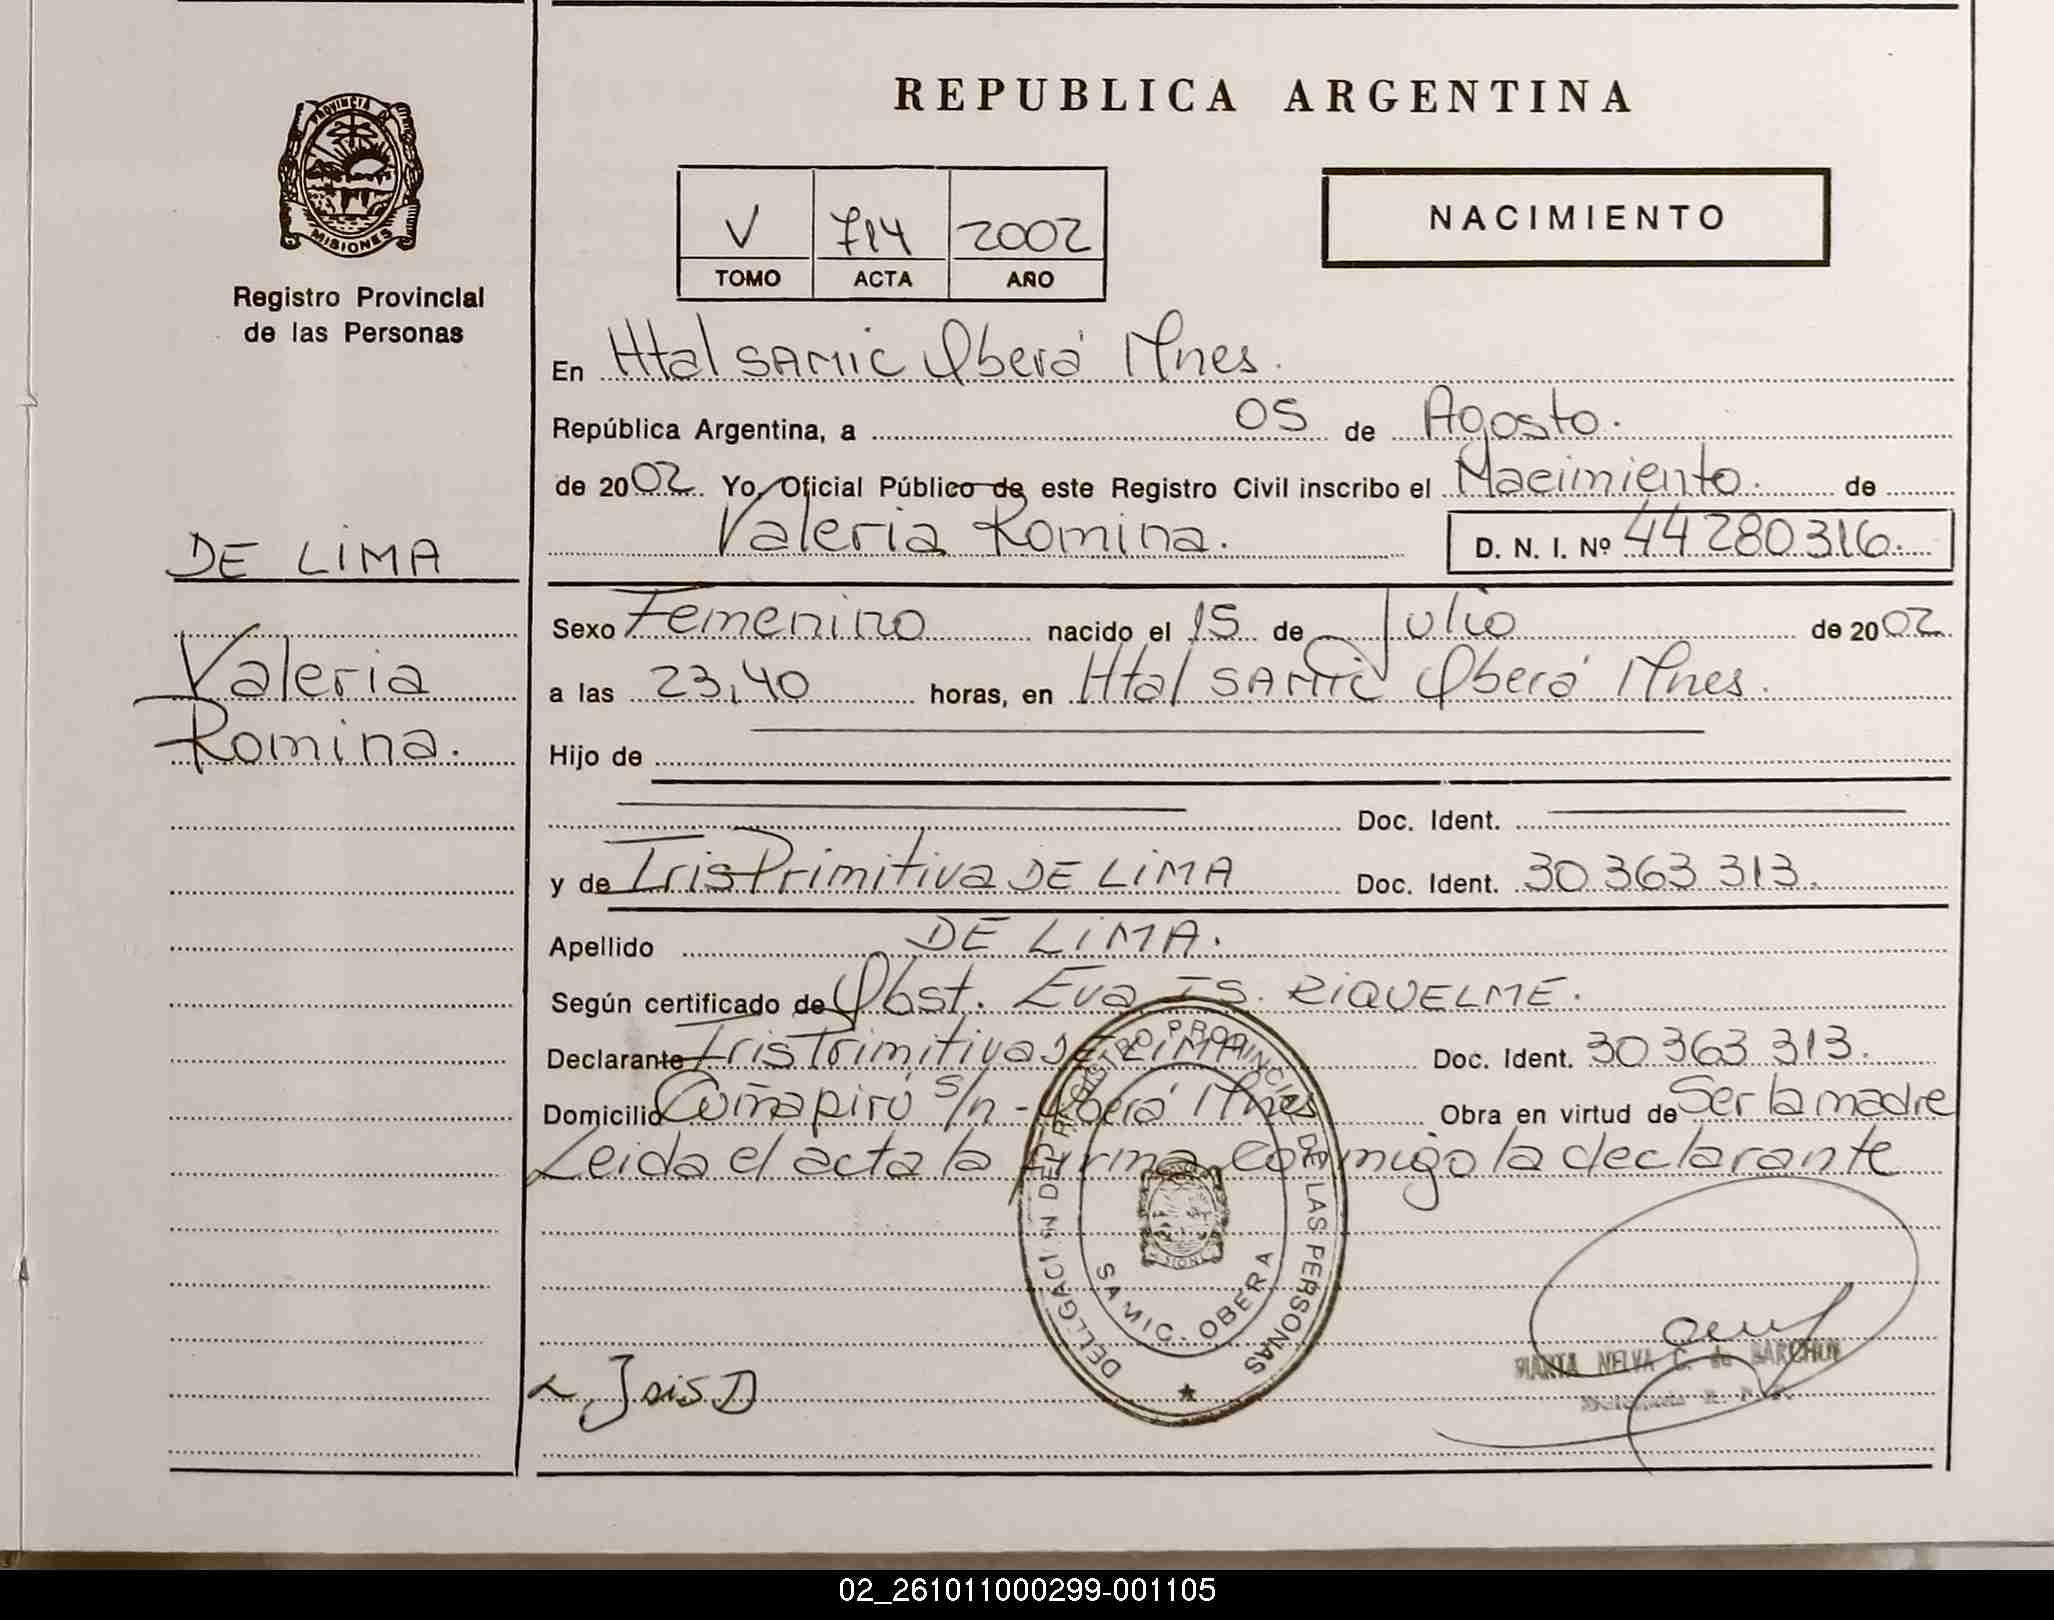 REPUBLICA ARGENTINA
PROVINCIA DE
MISIONES
Registro Provincial
de las Personas
V 714 2002
TOMO ACTA AÑO
NACIMIENTO
En Htal SAMIC Oberá Mnes.
República Argentina, a 05 de Agosto.
de 2002 Yo, Oficial Público de este Registro Civil inscribo el Nacimiento. de
Valeria Romina. D. N. I. Nº 44 280 316.
DE LIMA
Valeria
Romina.
Sexo Femenino nacido el 15 de Julio de 2002
a las 23,40 horas, en Htal SAMIC Oberá Mnes.
Hijo de
Doc. Ident.
y de Iris Primitiva DE LIMA Doc. Ident. 30 363 313.
Apellido DE LIMA.
Según certificado de Obst. Eva IS. RIQUELME.
Declarante Iris Primitiva DE LIMA Doc. Ident. 30 363 313.
Domicilio s/n - Oberá Mnes Obra en virtud de Ser la madre
Leida el acta la firma conmigo la declarante
DELEGACION DEL REGISTRO PROVINCIAL DE LAS PERSONAS
SAMIC - OBERA
MARTA NELVA C. de BARCHUK
Iris D
02_261011000299-001105